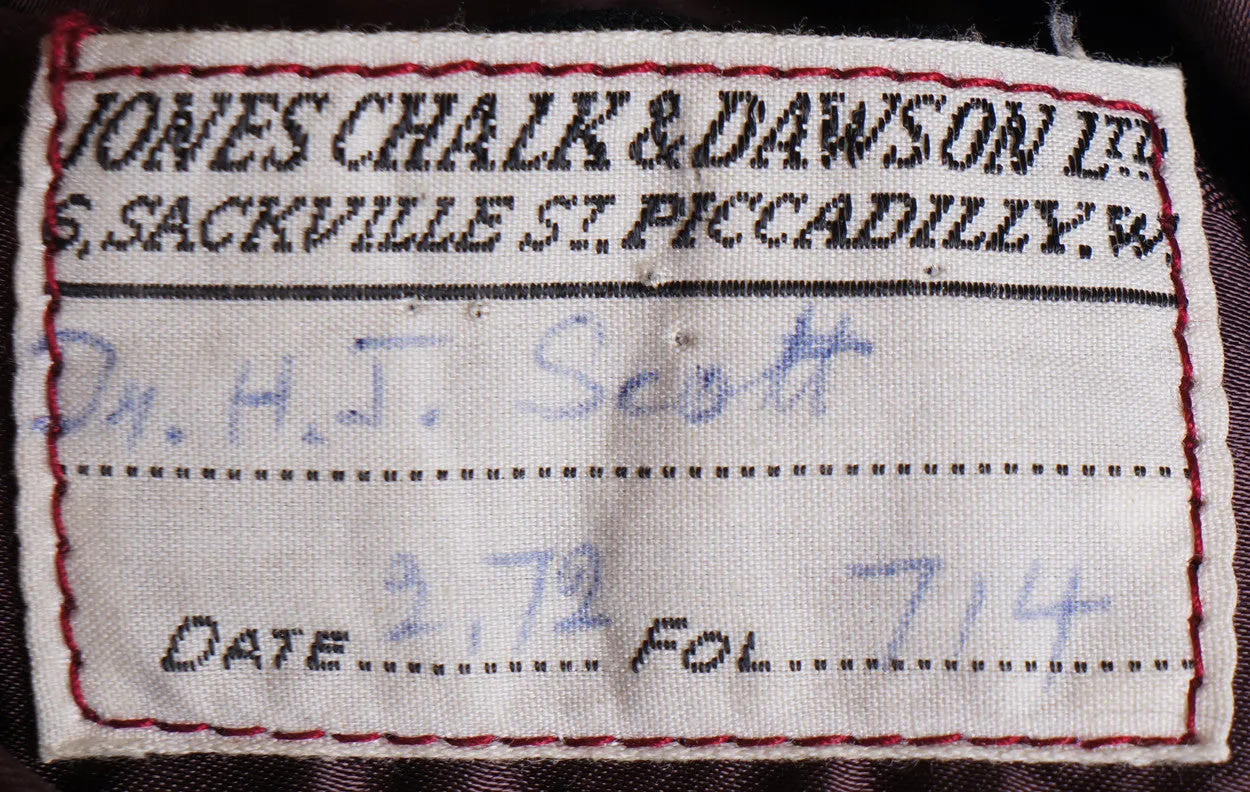 JONES CHALK & DAWSON LTD
6, SACKVILLE ST. PICCADILLY. W.
Dr. H. J. Scott
DATE 2,72 FOL 714